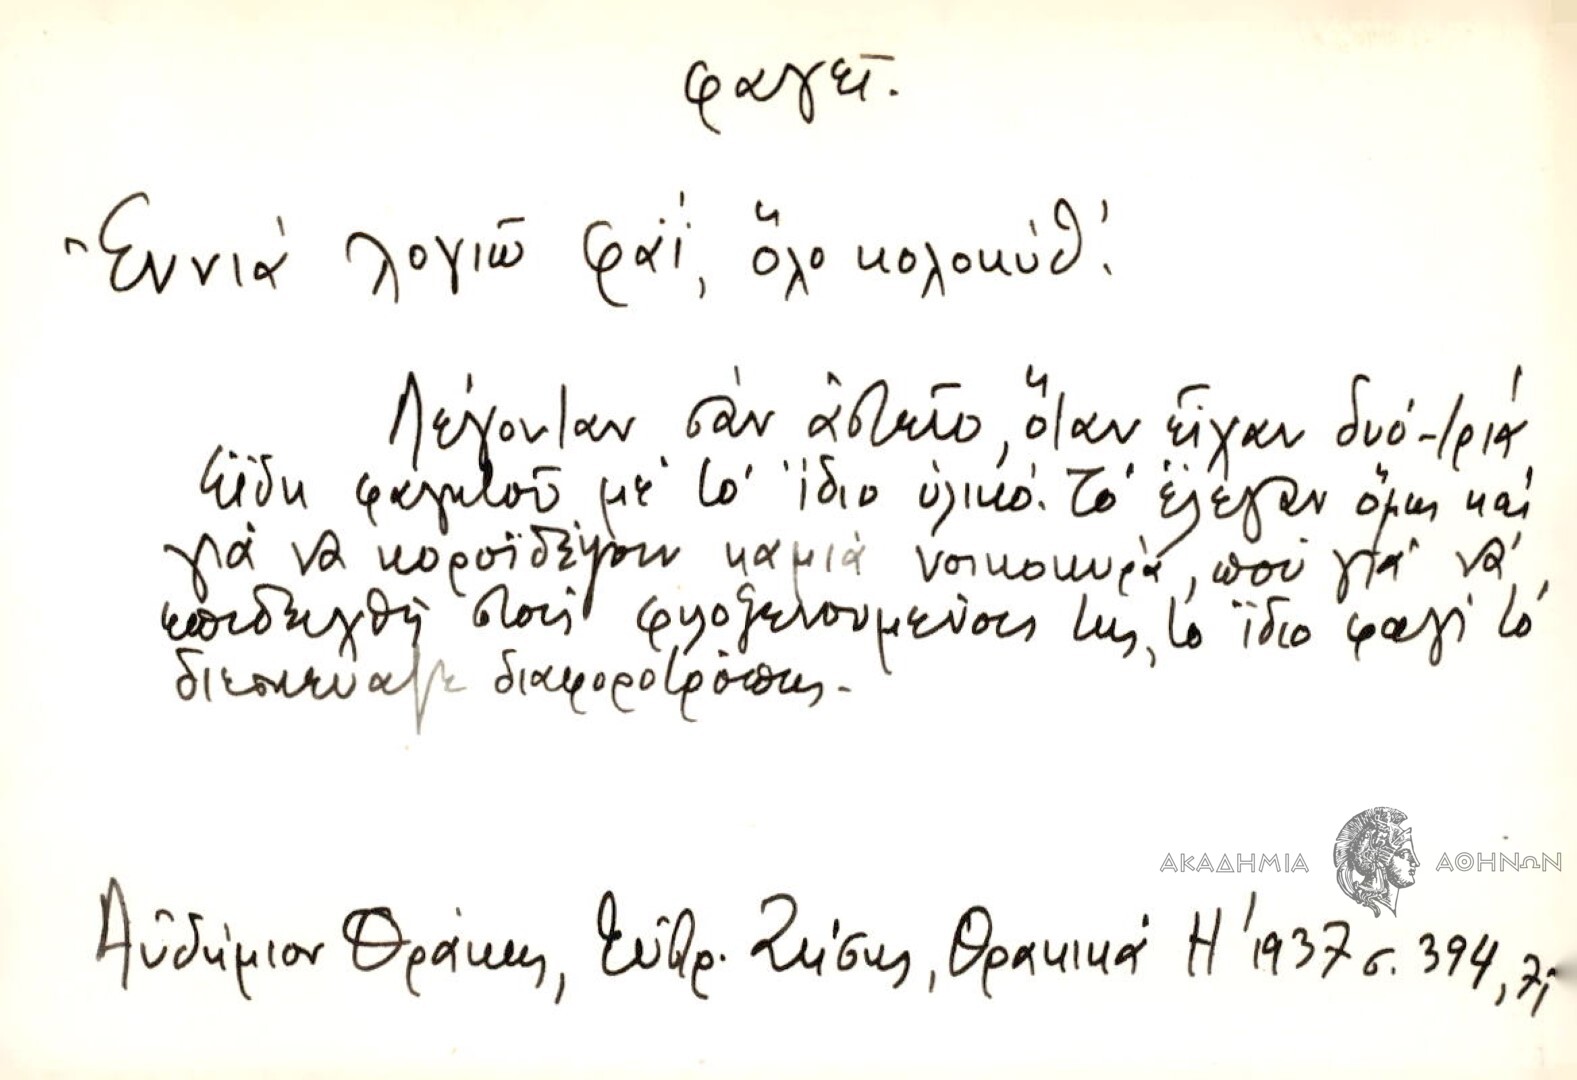 φαγεῖ.
Ἐννιά λογιῶ φάϊ, ὅλο κολοκύθ'.
Λέγονταν σὰν ἀστεῖο, ὅταν εἶχαν δυό-τριά
εἴδη φαγητοῦ μέ τό ἴδιο ὑλικό. Τό ἔλεγαν ὅμως καί
γιὰ νὰ κοροϊδέψουν καμιὰ νοικοκυρὰ, πού γιά νά
ἐπιδειχθῇ στούς φιλοξενουμένους της, τό ἴδιο φαγί τό
διεσκεύαζε διαφοροτρόπως.
ΑΚΑΔΗΜΙΑ ΑΘΗΝΩΝ
Αὐδήμιον Θράκης, Εὐστρ. Ζήσης, Θρακικά Η' 1937 σ. 394,